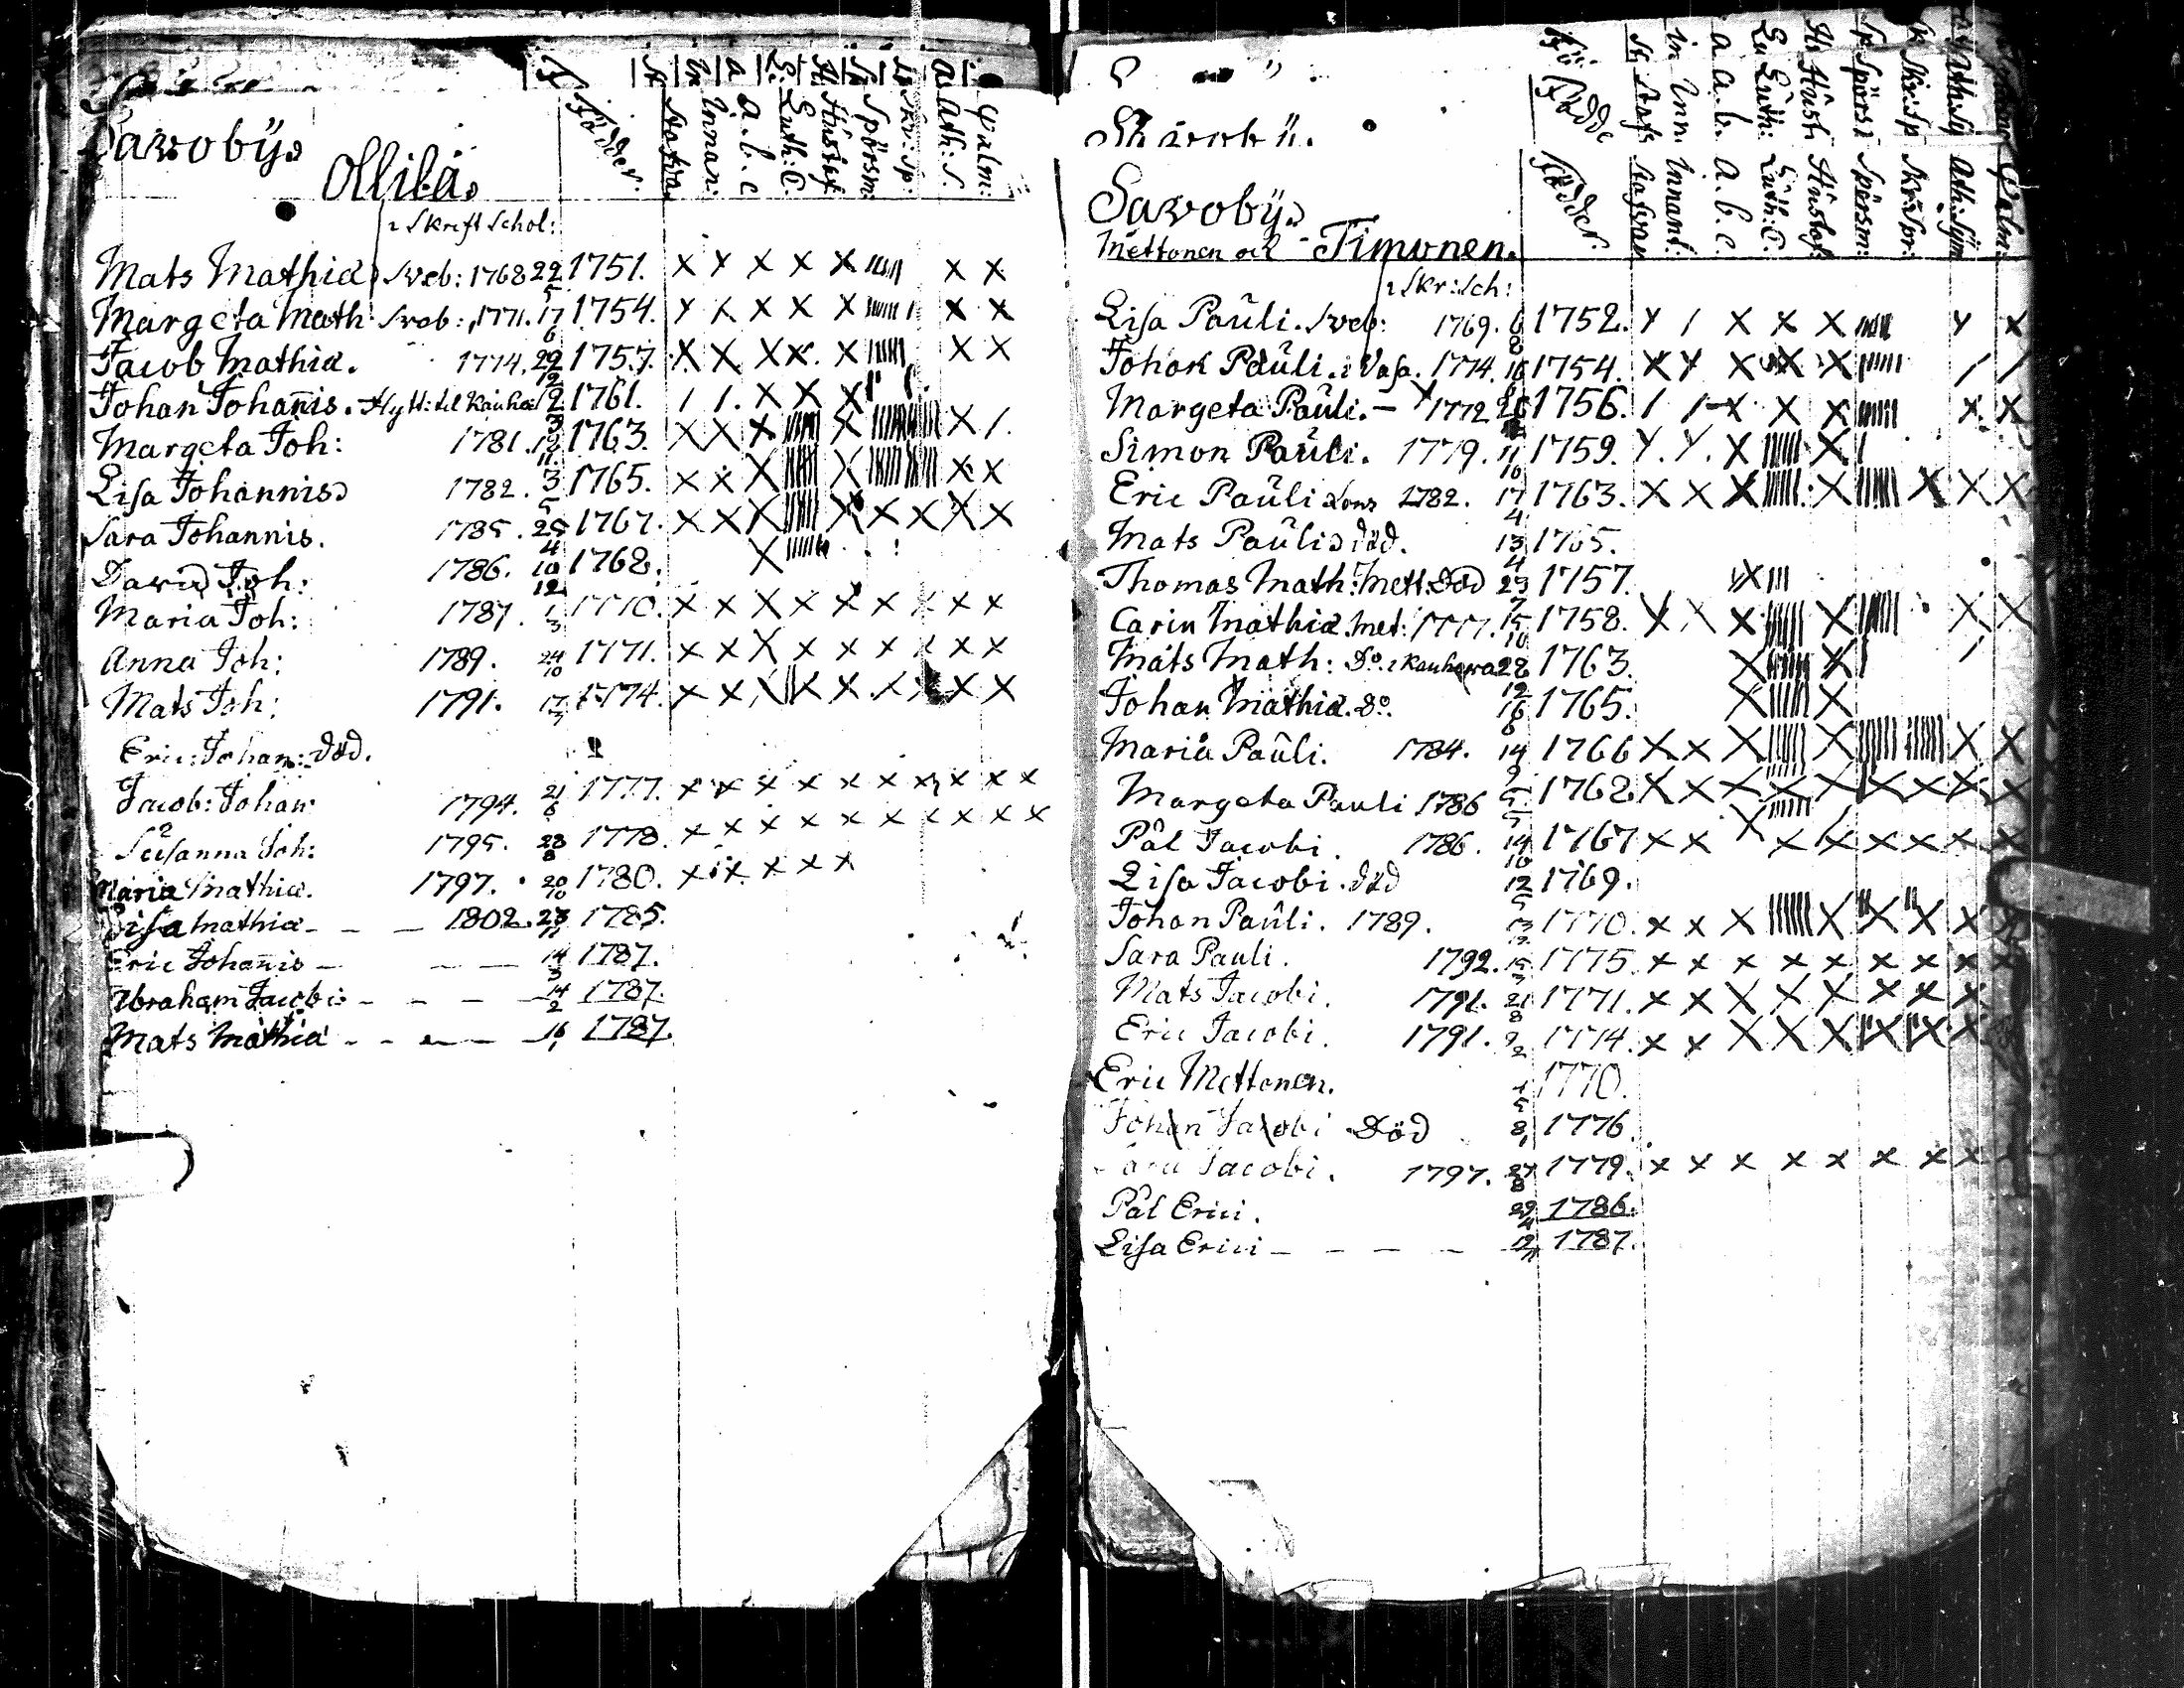 Savobÿ.
Ollila.
Födder.
Stafvar
Innan:
a. b. c
Luth: C:
Hustaf
Spörsm:
Skr: Sp:
Ath: S.
Psalm:
i Skrift Schol:
Mats Mathiæ Sveb: 1768 22/5 1751. X X X X X X X
Margeta Math Sveb: 1771. 17/6 1754. X X X X X X X
Jacob Mathiæ. 1774. 29/12 1757. X X X X X X X
Johan Johannis. Flytt: til Kauha 2/3 1761. / / X X X
Margeta Joh: 1781. 12/11 1763. X X X X X /
Lisa Johannis 1782. 3/5 1765. X X X X X X
Sara Johannis. 1785. 25/4 1767. X X X X X X X X
David Joh: 1786. 10/12 1768. X
Maria Joh: 1787. 1/3 1770. X X X X X X X X X
Anna Joh: 1789. 24/10 1771. X X X X X X X X X
Mats Joh: 1791. 17/3 1774. X X X X X X X X
Eric: Johan: död.
Jacob: Johan: 1794. 21/6 1777. X X X X X X X X X X
Susanna Joh: 1795. 23/8 1778. X X X X X X X X X X
Maria Mathiæ. 1797. 20/10 1780. X X X X X
Lisa Mathiæ - - - 1802. 23/11 1785.
Eric Johannis - - - 14/3 1787.
Abraham Jacobi - - - 14/2 1787.
Mats Mathiæ - - - - 16/1 1787.
Savobÿ.
Mettonen och Timonen.
Födder.
Stafvar
Innant:
a. b. c.
Luth: C:
Hustaf:
Spörsm:
Skr: Spr:
Ath: Sÿm
Psalm:
i Skr: Sch:
Lisa Pauli. Sveb: 1769. 6/8 1752. X / X X X X X
Johan Pauli. i Vasa. 1774. 16 1754. X X X X X / /
Margeta Pauli. - 1772 1756. / / X X X X X
Simon Pauli. 1779. 11/10 1759. X X X X
Eric Pauli Sons 1782. 17/4 1763. X X X X X X X
Mats Pauli död. 13/4 1765.
Thomas Math: Mett. Död 23/7 1757. X
Carin Mathiæ. Met: 1777. 15/10 1758. X X X X X X
Mats Math: Do. i Kauhava 28/12 1763. X X /
Johan Mathiæ. Do. 16/6 1765. X X
Maria Pauli. 1784. 14/9 1766 X X X X X X
Margeta Pauli 1786 5/5 1762 X X X X X X X X X
Pål Jacobi. 1786. 14/10 1767 X X X X X X X X X
Lisa Jacobi. död 12/5 1769.
Johan Pauli. 1789. 13/12 1770. X X X X X X X X
Sara Pauli. 1792. 15/3 1775. X X X X X X X X X
Mats Jacobi. 1791. 21/8 1771. X X X X X X X X
Eric Jacobi. 1791. 9/2 1774. X X X X X X X X
Eric Mettonen. 1/5 1770.
Johan Jacobi Död 8/1 1776.
Jacobi. 1797. 27/8 1779. X X X X X X X X
Pål Erici. 29/4 1786.
Lisa Erici - - - - 12/11 1787.